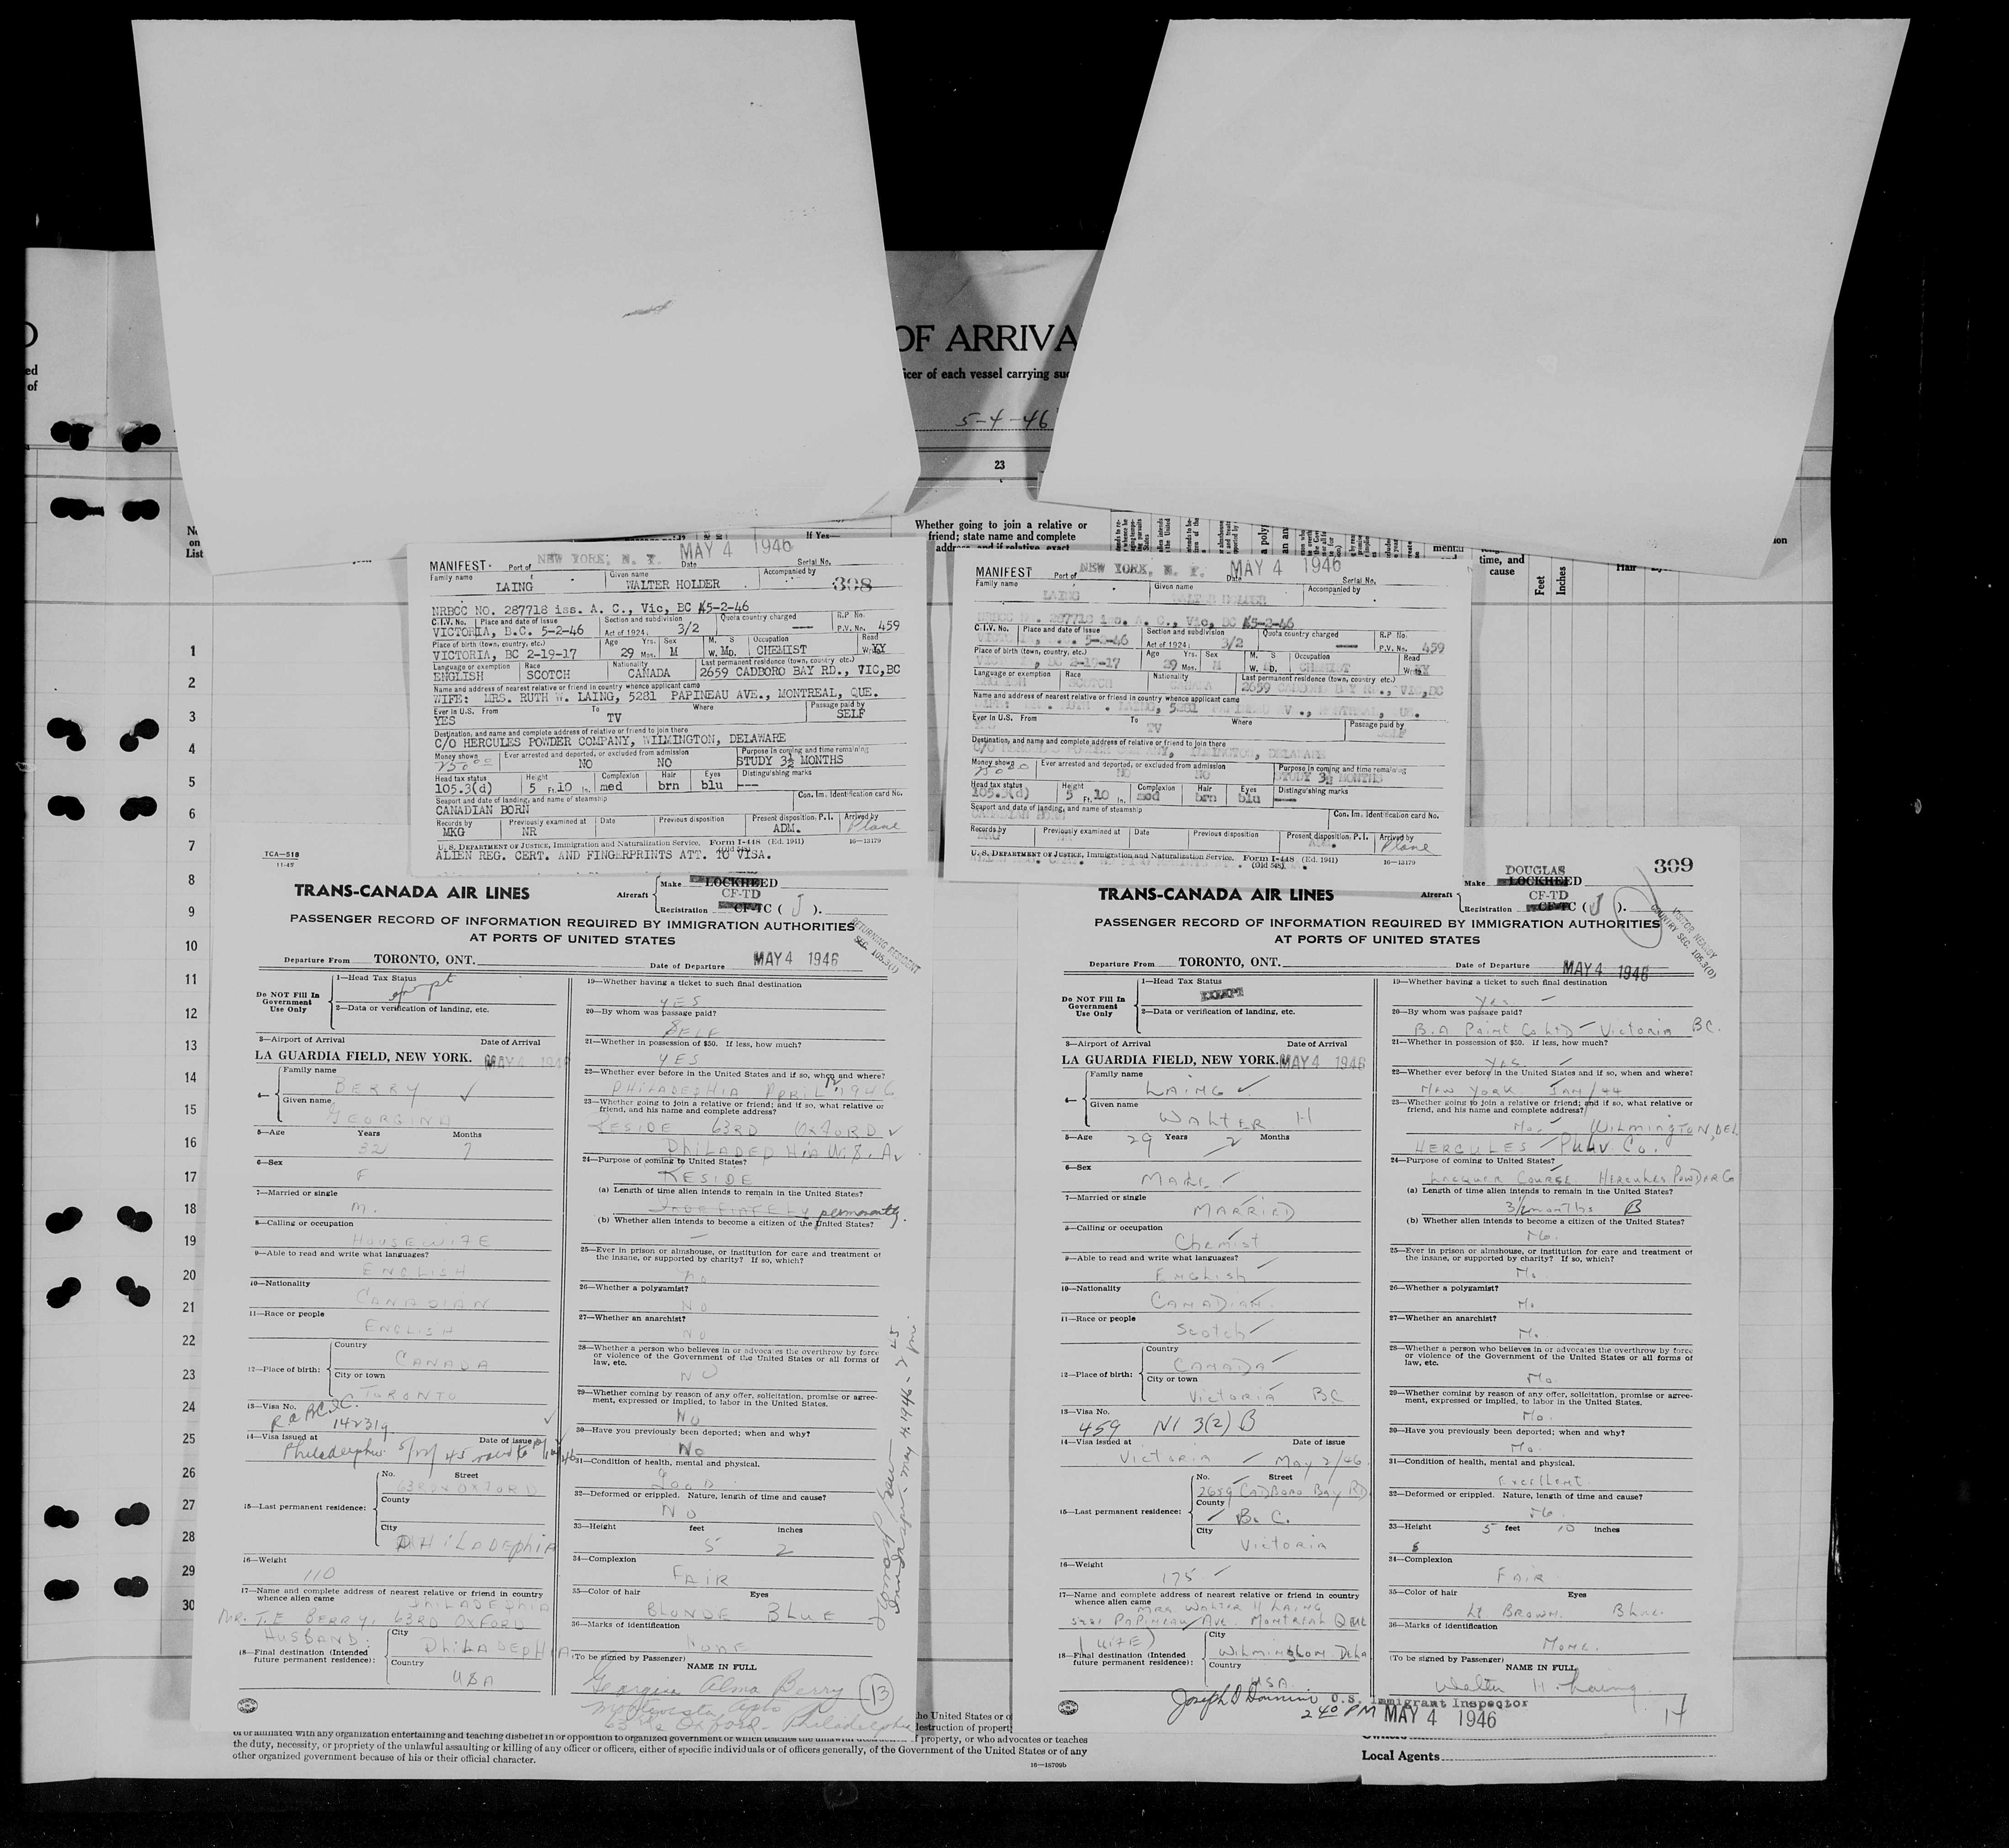 OF ARRIVA
ed
of
icer of each vessel carrying suc
5-4-46
23
Whether going to join a relative or
friend; state name and complete
address, and if relative, exact
If Yes—
No
on
List
mental
time, and
cause
Feet
Inches
1
2
3
4
5
6
7
8
9
10
11
12
13
14
15
16
17
18
19
20
21
22
23
24
25
26
27
28
29
30
MANIFEST Port of NEW YORK, N. Y. Date MAY 4 1946 Serial No.
Family name Given name Accompanied by
LAING WALTER HOLDER 308
NRBCC NO. 287718 iss. A. C., Vic, BC 5-2-46
C.I.V. No. Place and date of issue Section and subdivision Quota country charged R.P. No.
VICTORIA, B.C. 5-2-46 Act of 1924: 3/2 --- P.V. No. 459
Place of birth (town, country, etc.) Age Yrs. Sex M. S Occupation Read
VICTORIA, BC 2-19-17 29 Mos. M W. MD. CHEMIST Write
Language or exemption Race Nationality Last permanent residence (town, country etc.)
ENGLISH SCOTCH CANADA 2659 CADBORO BAY RD., VIC,BC
Name and address of nearest relative or friend in country whence applicant came
WIFE: MRS. RUTH W. LAING, 5281 PAPINEAU AVE., MONTREAL, QUE.
Ever in U.S. From To Where Passage paid by
YES TV SELF
Destination, and name and complete address of relative or friend to join there
C/O HERCULES POWDER COMPANY, WILMINGTON, DELAWARE
Money shown Ever arrested and deported, or excluded from admission Purpose in coming and time remaining
NO NO STUDY 3½ MONTHS
Head tax status Height Complexion Hair Eyes Distinguishing marks
105.3(d) 5 Ft. 10 In. med brn blu ---
Seaport and date of landing, and name of steamship Con. Im. Identification card No.
CANADIAN BORN
Records by Previously examined at Date Previous disposition Present disposition, P. I. Arrived by
MKG NR ADM. Plane
U. S. DEPARTMENT OF JUSTICE, Immigration and Naturalization Service. Form I-448 (Ed. 1941) (Old 548) 16-13179
ALIEN REG. CERT. AND FINGERPRINTS ATT. TO VISA.
MANIFEST Port of NEW YORK, N. Y. Date MAY 4 1946 Serial No.
Family name Given name Accompanied by
LAING WALTER HOLDER
NRBCC NO. 287718 iss. A. C., Vic, BC 5-2-46
C.I.V. No. Place and date of issue Section and subdivision Quota country charged R.P. No.
VICTORIA, B.C. 5-2-46 Act of 1924: 3/2 --- P.V. No. 459
Place of birth (town, country, etc.) Age Yrs. Sex M. S Occupation Read
VICTORIA, BC 2-19-17 29 Mos. M W. D. CHEMIST Write
Language or exemption Race Nationality Last permanent residence (town, country etc.)
ENGLISH SCOTCH CANADA 2659 CADBORO BAY RD., VIC,BC
Name and address of nearest relative or friend in country whence applicant came
WIFE: MRS. RUTH W. LAING, 5281 PAPINEAU AVE., MONTREAL, QUE.
Ever in U.S. From To Where Passage paid by
YES TV SELF
Destination, and name and complete address of relative or friend to join there
C/O HERCULES POWDER COMPANY, WILMINGTON, DELAWARE
Money shown Ever arrested and deported, or excluded from admission Purpose in coming and time remaining
NO NO STUDY 3½ MONTHS
Head tax status Height Complexion Hair Eyes Distinguishing marks
105.3(d) 5 Ft. 10 In. med brn blu ---
Seaport and date of landing, and name of steamship Con. Im. Identification card No.
CANADIAN BORN
Records by Previously examined at Date Previous disposition Present disposition, P. I. Arrived by
MKG ADM. Plane
U. S. DEPARTMENT OF JUSTICE, Immigration and Naturalization Service. Form I-448 (Ed. 1941) (Old 548) 16-13179
TCA-518
11-45
TRANS-CANADA AIR LINES
Aircraft Make LOCKHEED
CF-TD
Registration CF-TC ( J ).
PASSENGER RECORD OF INFORMATION REQUIRED BY IMMIGRATION AUTHORITIES
AT PORTS OF UNITED STATES
RETURNING RESIDENT
SEC. 105.3(f)
Departure From TORONTO, ONT. Date of Departure MAY 4 1946
Do NOT Fill In
Government
Use Only
1—Head Tax Status
exempt
2—Data or verification of landing, etc.
3—Airport of Arrival Date of Arrival
LA GUARDIA FIELD, NEW YORK. MAY 4 1946
4— Family name
BERRY ✓
Given name
GEORGINA
5—Age Years Months
32 7
6—Sex
F
7—Married or single
M.
8—Calling or occupation
HOUSEWIFE
9—Able to read and write what languages?
ENGLISH
10—Nationality
CANADIAN
11—Race or people
ENGLISH
12—Place of birth: Country
CANADA
City or town
TORONTO
13—Visa No.
142319
14—Visa issued at Date of issue
Philadelphia
15—Last permanent residence: No. Street
63RD & OXFORD
County
City
PHILADEPHIA
16—Weight
110
17—Name and complete address of nearest relative or friend in country
whence alien came PHILADEPHIA
MR. T.E BERRY. 63RD OXFORD
HUSBAND.
18—Final destination (Intended
future permanent residence): City
PHILADEPHIA
Country
USA
19—Whether having a ticket to such final destination
YES
20—By whom was passage paid?
SELF
21—Whether in possession of $50. If less, how much?
YES
22—Whether ever before in the United States and if so, when and where?
PHILADEPHIA APRIL 12, 1946
23—Whether going to join a relative or friend; and if so, what relative or
friend, and his name and complete address?
RESIDE 63RD OXFORD
PHILADEPHIA U.S.A
24—Purpose of coming to United States?
RESIDE
(a) Length of time alien intends to remain in the United States?
INDEFINTELY permanently.
(b) Whether alien intends to become a citizen of the United States?
—
25—Ever in prison or almshouse, or institution for care and treatment of
the insane, or supported by charity? If so, which?
NO
26—Whether a polygamist?
NO
27—Whether an anarchist?
NO
28—Whether a person who believes in or advocates the overthrow by force
or violence of the Government of the United States or all forms of
law, etc.
NO
29—Whether coming by reason of any offer, solicitation, promise or agree-
ment, expressed or implied, to labor in the United States.
NO
30—Have you previously been deported; when and why?
NO
31—Condition of health, mental and physical.
GOOD
32—Deformed or crippled. Nature, length of time and cause?
NO
33—Height feet inches
5 2
34—Complexion
FAIR
35—Color of hair Eyes
BLONDE BLUE
36—Marks of identification
NONE
(To be signed by Passenger)
NAME IN FULL
Georgina Alma Berry
63rd & Oxford - Philadelphia
13
May 4, 1946 - 2 45 pm.
309
TRANS-CANADA AIR LINES
DOUGLAS
Aircraft Make LOCKHEED
CF-TD
Registration CF-TC ( J ).
PASSENGER RECORD OF INFORMATION REQUIRED BY IMMIGRATION AUTHORITIES
AT PORTS OF UNITED STATES
VISITOR NEARBY
COUNTRY SEC. 105.3(D)
Departure From TORONTO, ONT. Date of Departure MAY 4 1946
Do NOT Fill In
Government
Use Only
1—Head Tax Status
EXEMPT
2—Data or verification of landing, etc.
3—Airport of Arrival Date of Arrival
LA GUARDIA FIELD, NEW YORK. MAY 4 1946
4— Family name
LAING ✓
Given name
WALTER H
5—Age 29 Years 2 Months
6—Sex
MALE
7—Married or single
MARRIED
8—Calling or occupation
Chemist
9—Able to read and write what languages?
ENGLISH
10—Nationality
CANADIAN
11—Race or people
Scotch
12—Place of birth: Country
CANADA
City or town
VICTORIA BC
13—Visa No.
459 NI 3(2) B
14—Visa issued at Date of issue
VICTORIA May 2/46
15—Last permanent residence: No. Street
2659 CADBORO BAY RD
County
B.C.
City
VICTORIA
16—Weight
175
17—Name and complete address of nearest relative or friend in country
whence alien came MRS WALTER H LAING
5281 PAPINEAU AVE. MONTREAL QUE
(WIFE)
18—Final destination (Intended
future permanent residence): City
WILMINGTON. DELA
Country
USA.
19—Whether having a ticket to such final destination
Yes
20—By whom was passage paid?
B.A PAINT CO LTD - VICTORIA BC.
21—Whether in possession of $50. If less, how much?
Yes
22—Whether ever before in the United States and if so, when and where?
NEW YORK JAN/44
23—Whether going to join a relative or friend; and if so, what relative or
friend, and his name and complete address?
No. WILMINGTON, DEL
HERCULES Co.
24—Purpose of coming to United States?
LACQUER COURSE. HERCULES POWDER Co
(a) Length of time alien intends to remain in the United States?
3½ months B
(b) Whether alien intends to become a citizen of the United States?
No.
25—Ever in prison or almshouse, or institution for care and treatment of
the insane, or supported by charity? If so, which?
No.
26—Whether a polygamist?
No.
27—Whether an anarchist?
No.
28—Whether a person who believes in or advocates the overthrow by force
or violence of the Government of the United States or all forms of
law, etc.
No.
29—Whether coming by reason of any offer, solicitation, promise or agree-
ment, expressed or implied, to labor in the United States.
No.
30—Have you previously been deported; when and why?
No.
31—Condition of health, mental and physical.
Excellent
32—Deformed or crippled. Nature, length of time and cause?
No.
33—Height 5 feet 10 inches
34—Complexion
FAIR
35—Color of hair Eyes
Lt BROWN. Blue.
36—Marks of identification
None.
(To be signed by Passenger)
NAME IN FULL
Walter H. Laing
U.S. Immigrant Inspector
2 40 PM MAY 4 1946
17
the United States or o
destruction of propert
or or affiliated with any organization entertaining and teaching disbelief in or opposition to organized government or which teaches the unlawful destruction of property, or who advocates or teaches
the duty, necessity, or propriety of the unlawful assaulting or killing of any officer or officers, either of specific individuals or of officers generally, of the Government of the United States or of any
other organized government because of his or their official character.
16—18709b
Owners
Local Agents